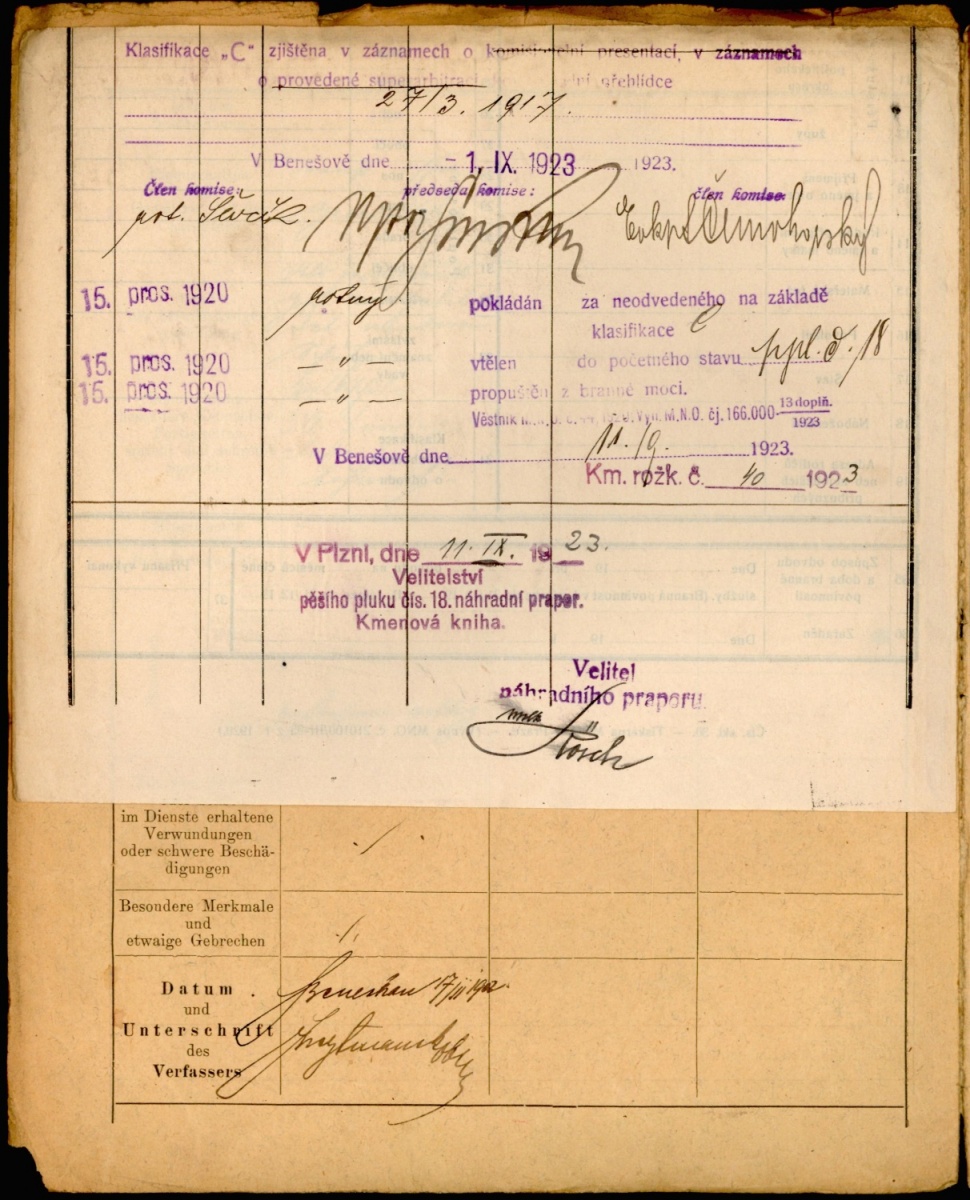 Klasifikace „C“ zjištěna v záznamech o komisionelní presentaci, v záznamech
o provedené superarbitraci přehlídce
27/3. 1917.
V Benešově dne - 1. IX. 1923 1923.
Člen komise: předseda komise: člen komise:
15. pros. 1920 pokládán za neodvedeného na základě
klasifikace C
15. pros. 1920 — " — vtělen do početného stavu ppl. č. 18
15. pros. 1920 — " — propuštěn z branné moci.
Věstník 1920, M.N.O. čj. 166.000-13 doplň./1923
V Benešově dne 11./9. 1923.
Km. rožk. č. 40 1923
V Plzni, dne 11. IX. 1923.
Velitelství
pěšího pluku čís. 18. náhradní prapor.
Kmenová kniha.
Velitel
náhradního praporu.
im Dienste erhaltene
Verwundungen
oder schwere Beschä-
digungen
Besondere Merkmale
und
etwaige Gebrechen
Datum
und
Unterschrift
des
Verfassers
Beneschau